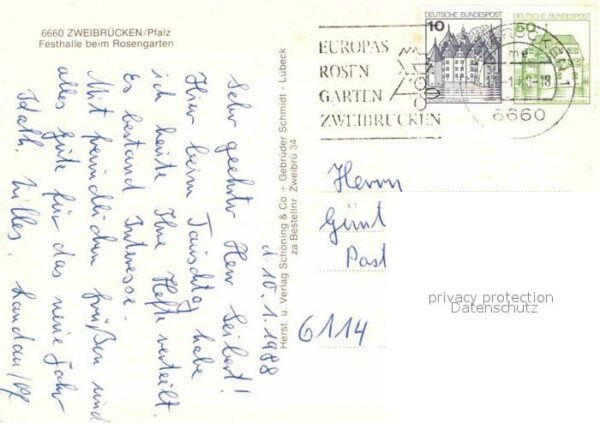 6660 ZWEIBRÜCKEN/Pfalz
Festhalle beim Rosengarten
d. 10.1.1988
Sehr geehrter Herr Seibert!
Hier beim Tauschtag habe
ich heute Ihre Hefte verteilt.
Es bestand Interesse.
Mit freundlichen Grüßen und
alles Gute für das neue Jahr
Landau/Pf
Herst. u. Verlag Schöning & Co + Gebrüder Schmidt - Lübeck
za Bestellnr. Zweibrü 34
EUROPAS
ROSEN
GARTEN
ZWEIBRÜCKEN
10
DEUTSCHE BUNDESPOST
50
DEUTSCHE BUNDESPOST
6660
Herrn
Günt
Post
6114
privacy protection
Datenschutz